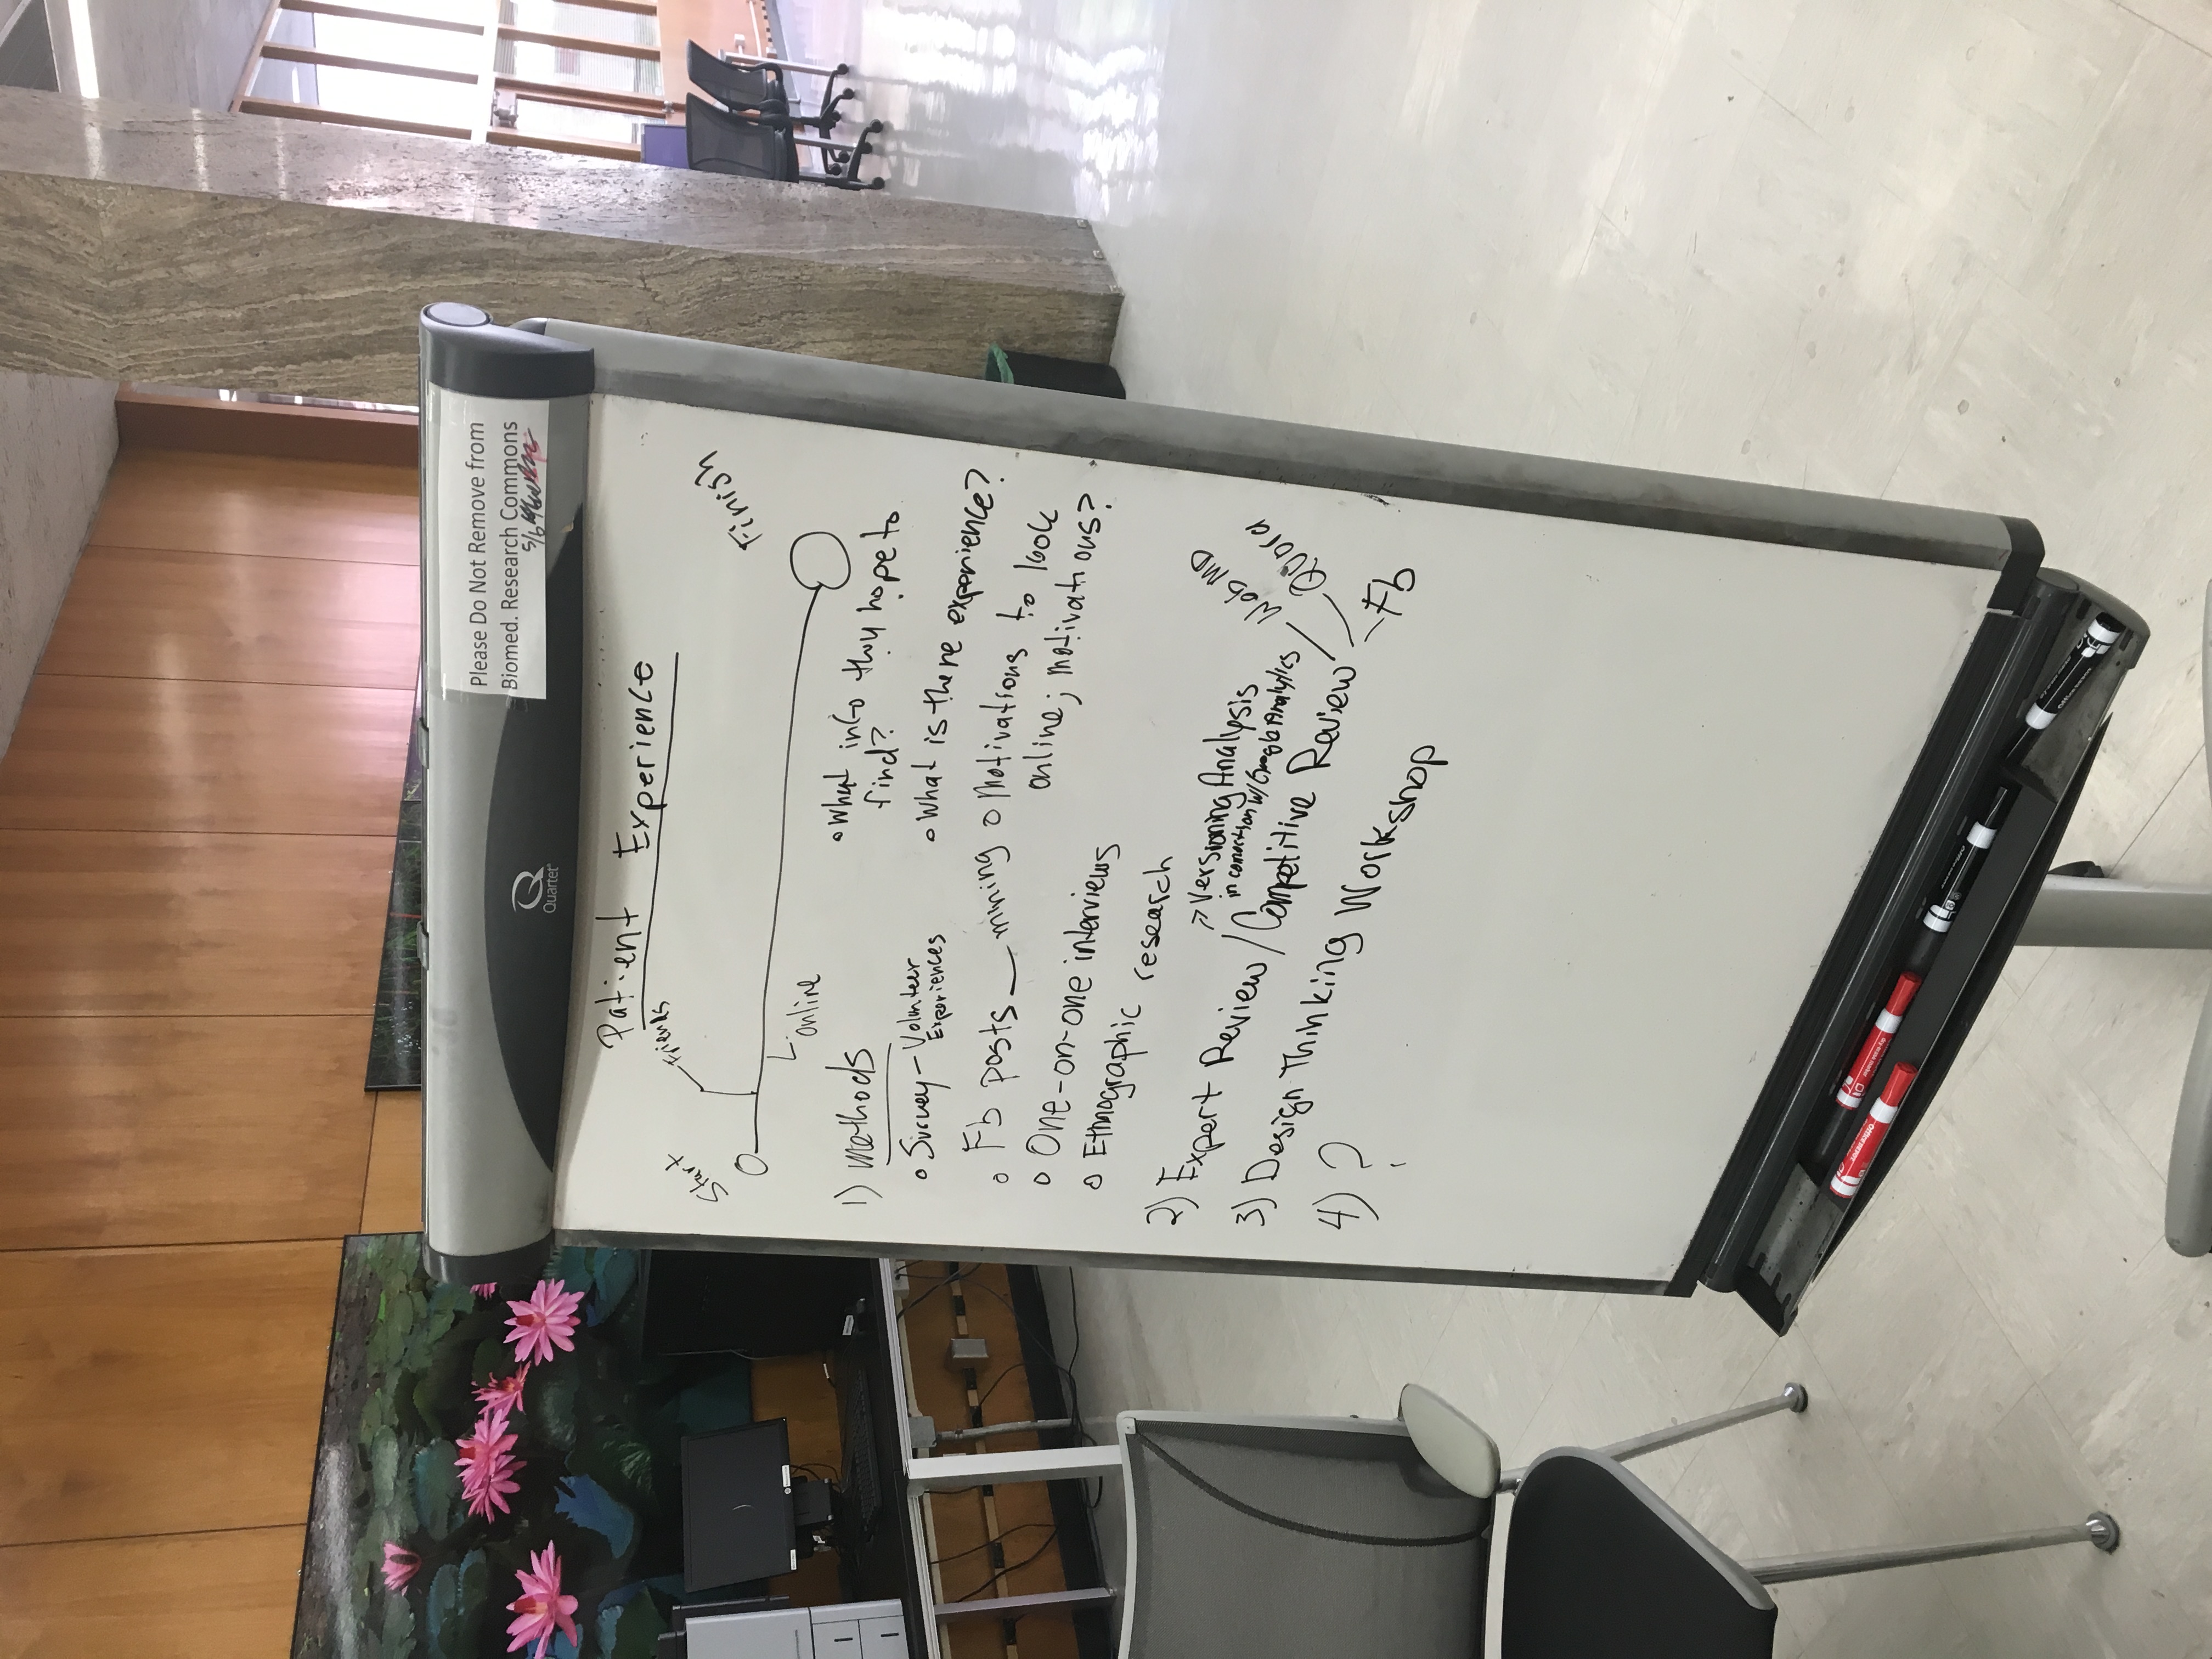 Please Do Not Remove from
Biomed. Research Commons
5/6
Quartet
Patient Experience
Friends
Start
Finish
online
1) methods
o Survey - Volunteer
Experiences
o Fb posts — mining
o One-on-one interviews
o Ethnographic research
o What info they hope to
find?
o What is there experience?
o Motivations to look
online; motivations?
2) Expert Review / Competitive Review
Versioning Analysis
in connection w/ Google Analytics
WebMD
Quora
Fb
3) Design Thinking Workshop
4) ?